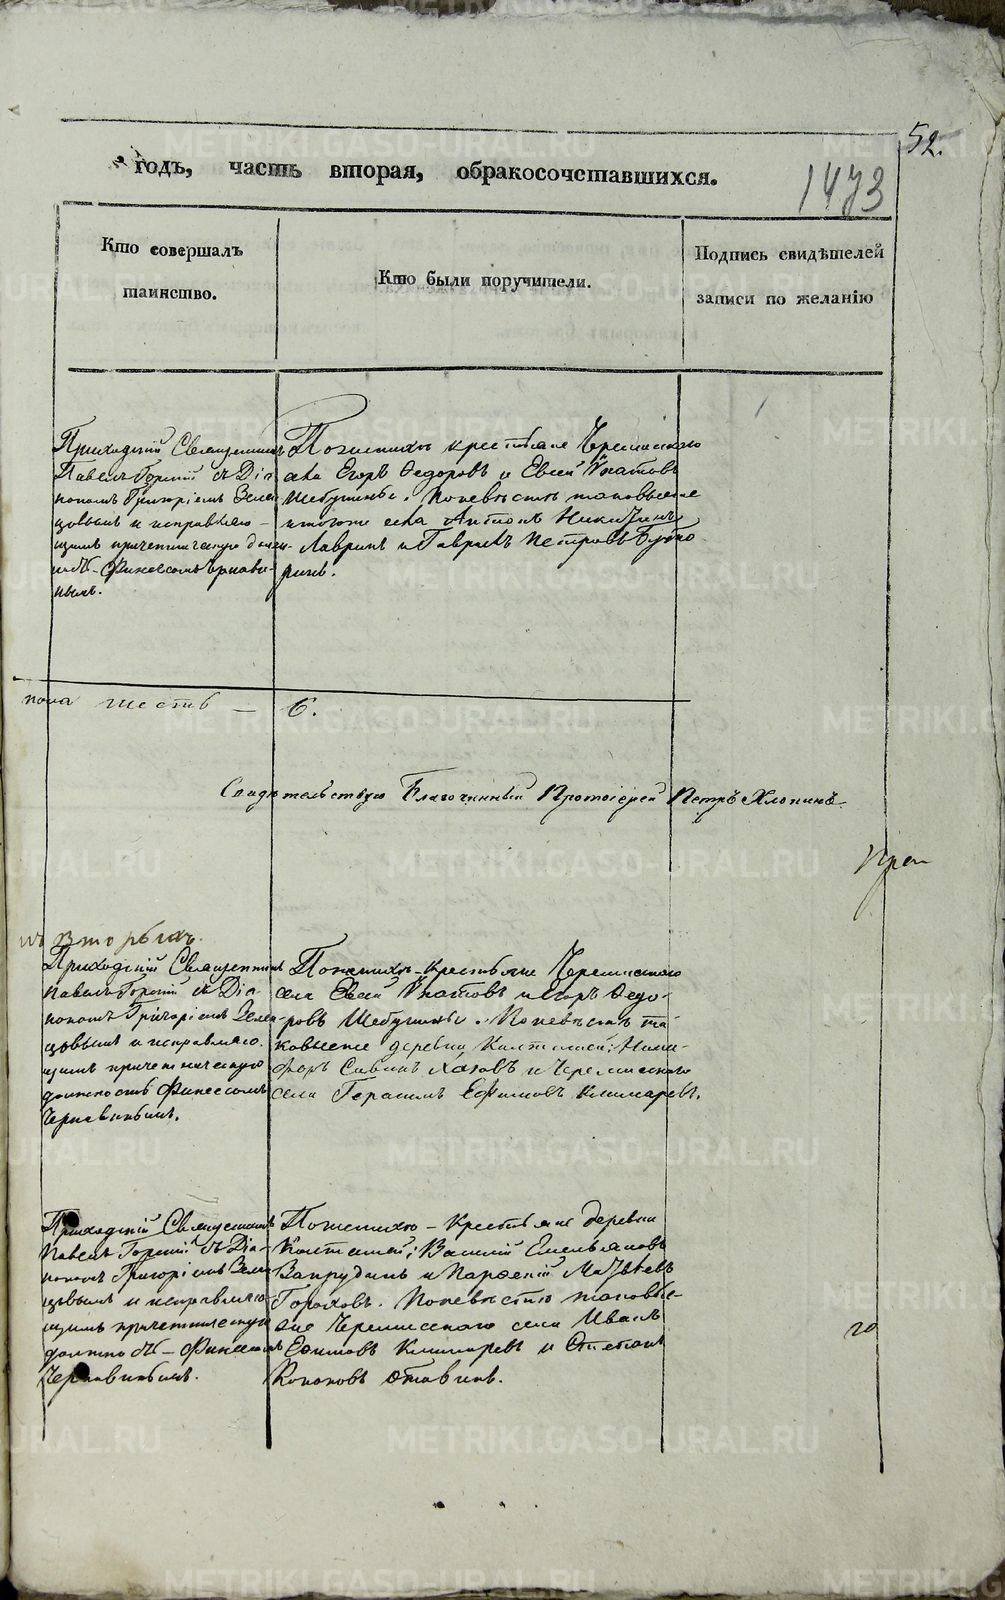 52.
годъ, часть вторая, обракосочетавшихся.
1473
Кто совершалъ
таинство.
Кто были поручители.
Подпись свидѣтелей
записи по желанію
Приходскій Священникъ
Павелъ Горный съ Діа-
кономъ Григоріемъ Зелен
цовымъ и исправляю-
щимъ причетническую
Финеесомъ Чернави-
нымъ.
По женихѣ крестьяне Черемисского
села Егоръ Ѳедоровъ и Евсей Игнатовъ
Шебунины. По невѣстѣ таковыеже
тогоже села Антонъ Никитинъ
Лавринъ и Гаврилъ Петровъ
шесть — 6.
Свидѣтельствую Благочинный Протоіерей Петръ Хлопинъ
вторыхъ.
Приходскій Священникъ
Павелъ Горный съ Діа-
кономъ Григоріемъ Зелен-
цовымъ и исправляю-
щимъ причетническую
должность Финеесомъ
Чернавинымъ.
По женихѣ - крестьяне Черемисского
села Евсей Игнатовъ и Егоръ Ѳедо-
ровъ Шебунины. По невѣстѣ та-
ковыеже деревни Колташей: Ники-
форъ Савинъ и Черемисского
села Герасимъ Ефимовъ Климаревъ.
Приходскій Священникъ
Павелъ Горный съ Діа-
кономъ Григоріемъ Зелен
цовымъ и исправляю-
щимъ причетническую
должность - Финеесомъ
Чернавинымъ.
По женихѣ - крестьяне деревни
Колташей: Василій Емельяновъ
Запрудинъ и Парѳеній Матвѣевъ
Гороховъ. По невѣстѣ таковые-
же Черемисского села Иванъ
Ефимовъ Климаревъ и Степанъ
Кононовъ
METRIKI.GASO-URAL.RU